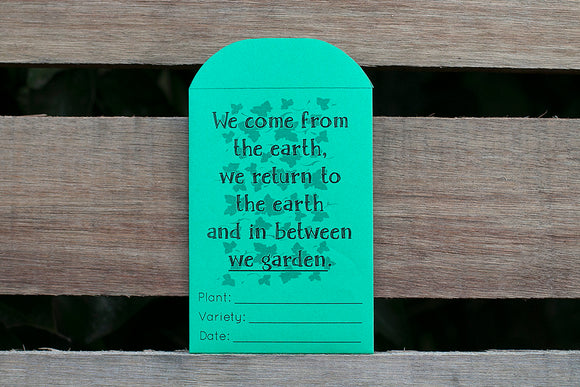 We come from
the earth,
we return to
the earth
and in between
we garden.
Plant:
Variety:
Date: